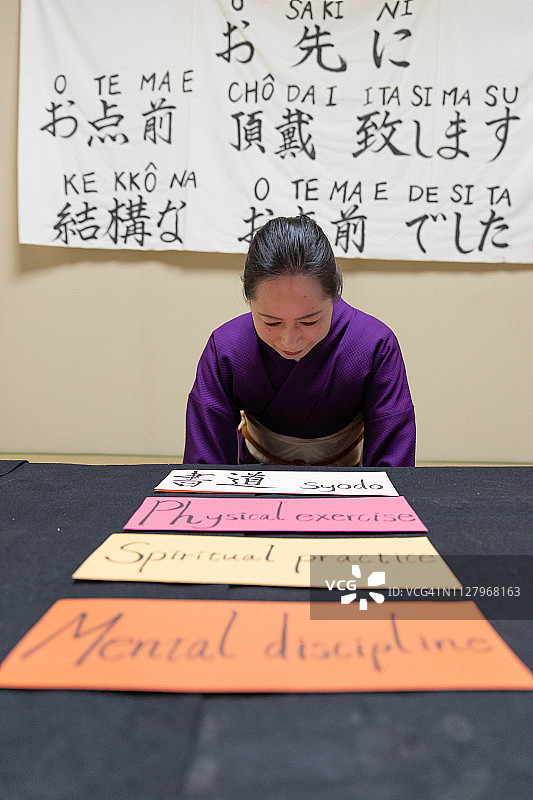 O SA KI NI
お先に
O TE MA E
お点前
CHÔ DA I ITA SI MA SU
頂戴 致します
KE KKÔ NA
結構な
O TE MA E DE SI TA
お点前 でした
書道 syodo
Physical exercise
Spiritual practice
Mental discipline
VCG
ID: VCG41N1127968163